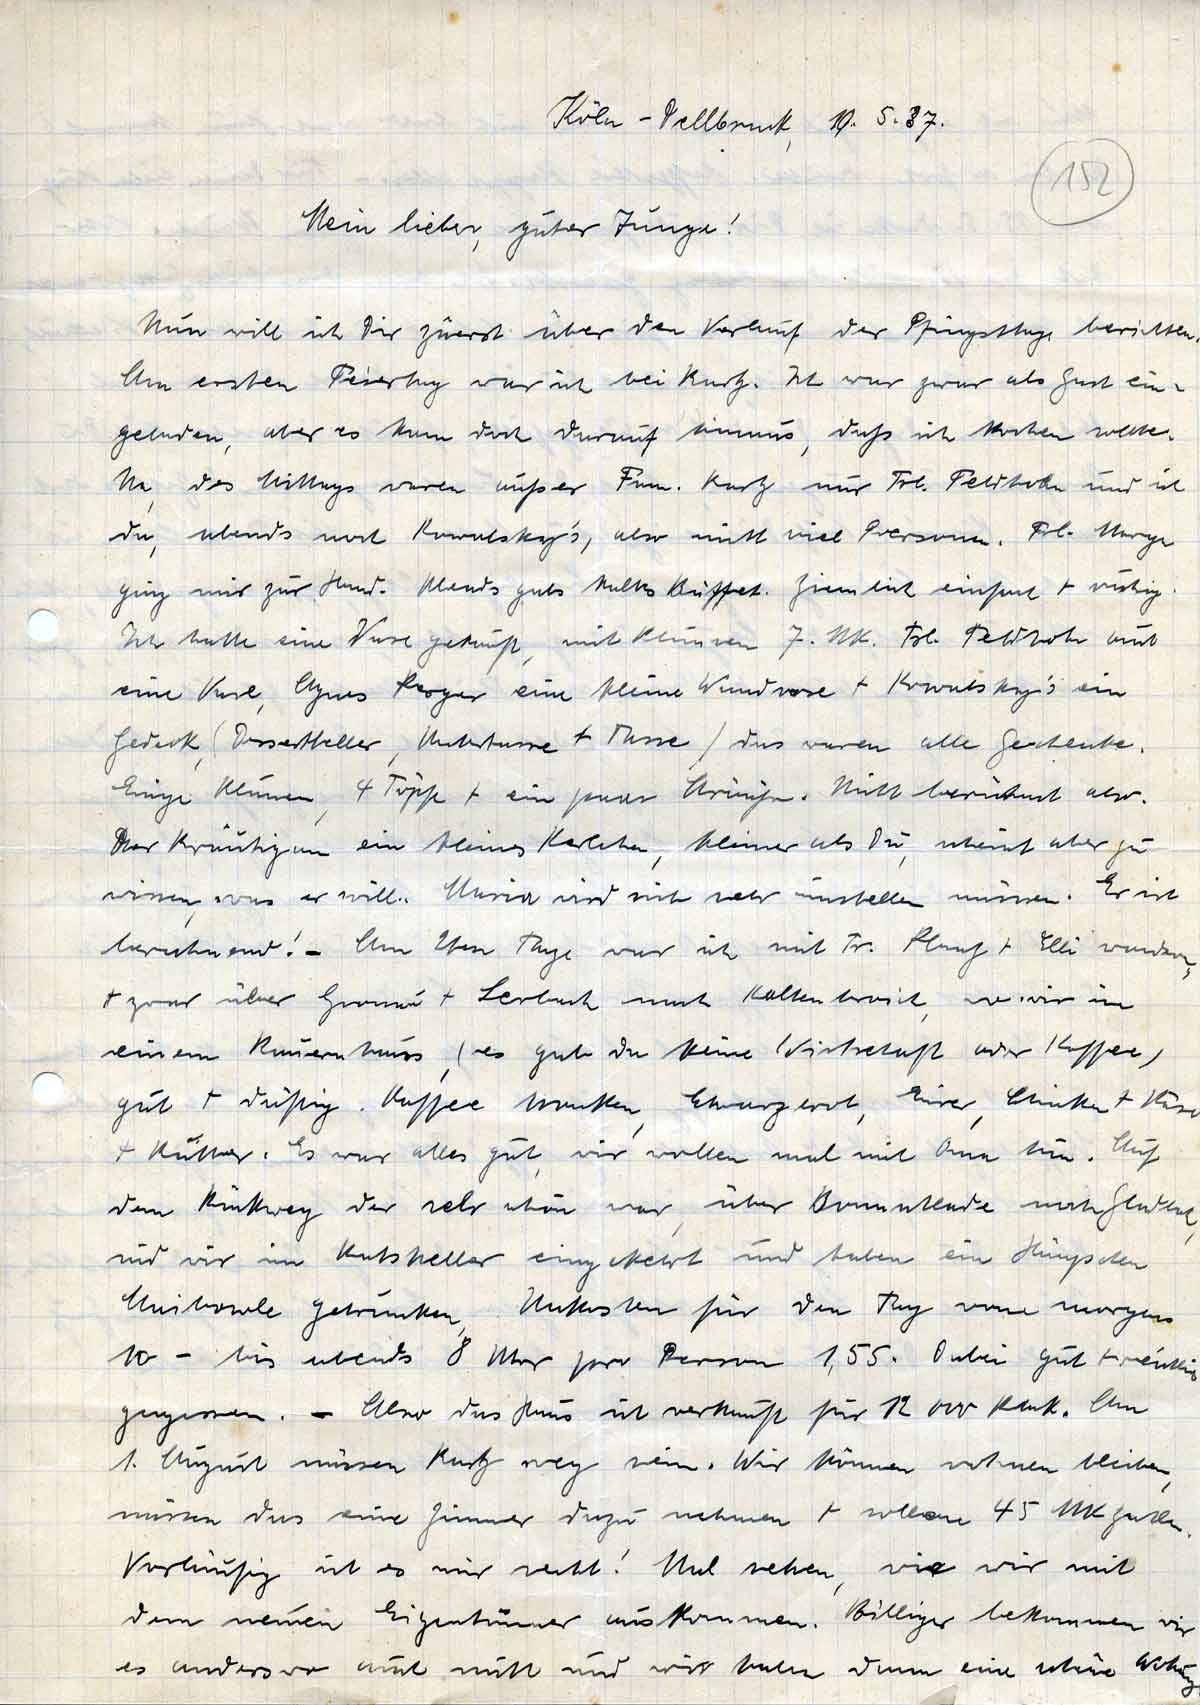 Köln-Dellbrück, 18. 5. 37.
152
Mein lieber, guter Junge!
Nun will ich Dir zuerst über den Verlauf der Pfingsttage berichten.
Am ersten Feiertag war ich bei Kurtz. Ich war zwar als Gast ein-
geladen, aber es kam doch darauf hinaus, daß ich kochen sollte.
Na, des Mittags waren außer Fam. Kurtz nur Frl. Feldhohn und ich
da, abends noch Kowalsky's, also nicht viel Personen. Frl. Marga
ging mir zur Hand. Abends gabs kaltes Büffet. Ziemlich einfach + ruhig.
Ich hatte eine Vase gekauft, mit Blumen 7. MK. Frl. Feldhohn auch
eine Vase, Agnes Berger eine kleine Wandvase + Kowalsky's ein
Gedeck, (Dessertteller, Untertasse + Tasse) das waren alle Geschenke.
Einige Blumen, 4 Töpfe + ein paar Sträuße. Nicht berühmt also.
Der Bräutigam ein kleines Kerlchen, kleiner als Du, scheint aber zu
wissen, was er will. Maria wird sich sehr umstellen müssen. Er ist
berechnend! - Am 2ten Tage war ich mit Fr. Plaug + Elli wandern,
+ zwar über Gronau + Lerbach nach Kaltenbroich, wo wir in
einem Bauernhaus, (es gab da keine Wirtschaft oder Kaffee)
gut + Kaffee tranken, Schwarzbrot, Eier, Schinken + Käse
+ Butter. Es war alles gut, wir wollen mal mit Oma hin. Auf
dem Rückweg der sehr schön war, über nach Gladbach,
sind wir im Ratskeller eingekehrt und haben ein
Maibowle getrunken, Unkosten für den Tag von morgens
10 - bis abends 8 Uhr pro Person 1,55. Dabei gut + reichlich
gegessen. - Also das Haus ist verkauft für 12 000 Am
1. August müssen Kurtz weg sein. Wir können wohnen bleiben,
müssen das eine Zimmer dazu nehmen + sollen 45 MK zahlen.
Vorläufig ist es mir recht! Mal sehen, wie wir mit
dem neuen Eigentümer auskommen. Billiger bekommen wir
es anderswo auch nicht und wir haben dann eine schöne Wohnung